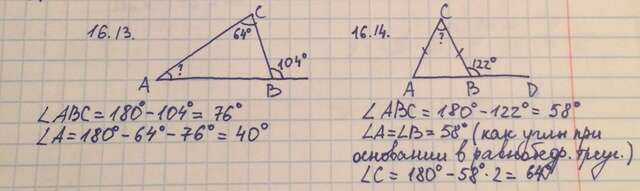 16.13.
C
64°
104°
?
A
B
∠ABC = 180° - 104° = 76°
∠A = 180° - 64° - 76° = 40°
16.14.
C
?
122°
A
B
D
∠ABC = 180° - 122° = 58°
∠A = ∠B = 58° (как углы при
основании в равнобедр. треуг.)
∠C = 180° - 58° · 2 = 64°